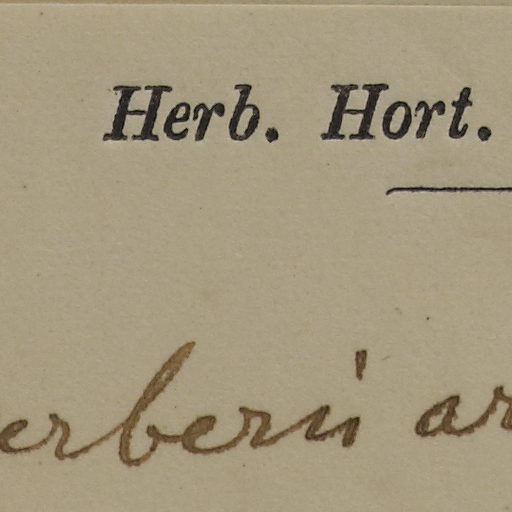 Herb. Hort.
erberis ar